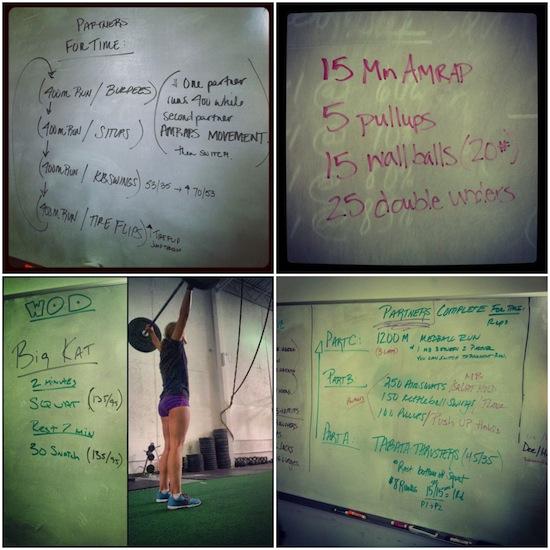 PARTNERS
FOR TIME:
400m RUN / BURPEES
400m RUN / SITUPS
400m RUN / KB SWINGS 53/35 → 70/53
400m RUN / TIRE FLIPS
One partner
runs 400 while
second partner
AMRAPS MOVEMENT.
then SWITCH.
1 TIRE FLIP
15 Min AMRAP
5 pullups
15 wall balls (20#)
25 double unders
WOD
Big KAT
2 minutes
SQUAT (135/95)
Rest 2 min
30 SNATCH (135/95)
PARTNERS COMPLETE FOR TIME:
Reps
PART C: 1200m MEDBALL RUN
* 1 MB BETWEEN 2 PEOPLE
YOU CAN SWITCH
PART B 250 AIRSQUATS / MB SQUAT HOLD
150 KETTLEBALL SWINGS / PLANK
100 PULLUPS / PUSH UP
PART A: TABATA THRUSTERS (45/35)
* Rest bottom of Squat
* 8 Rounds 15/15 = 1 Rd
P1 → P2